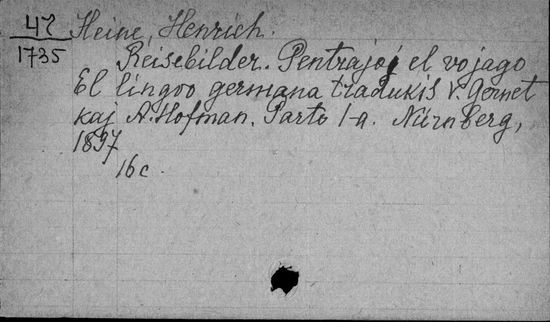 47
1735
Heine, Henrich.
Reisebilder. Pentrajoj el vojago
El lingvo germana tradukis V. Gernet
kaj A. Hofman. Parto 1-a. Nürnberg,
1897
16 c.